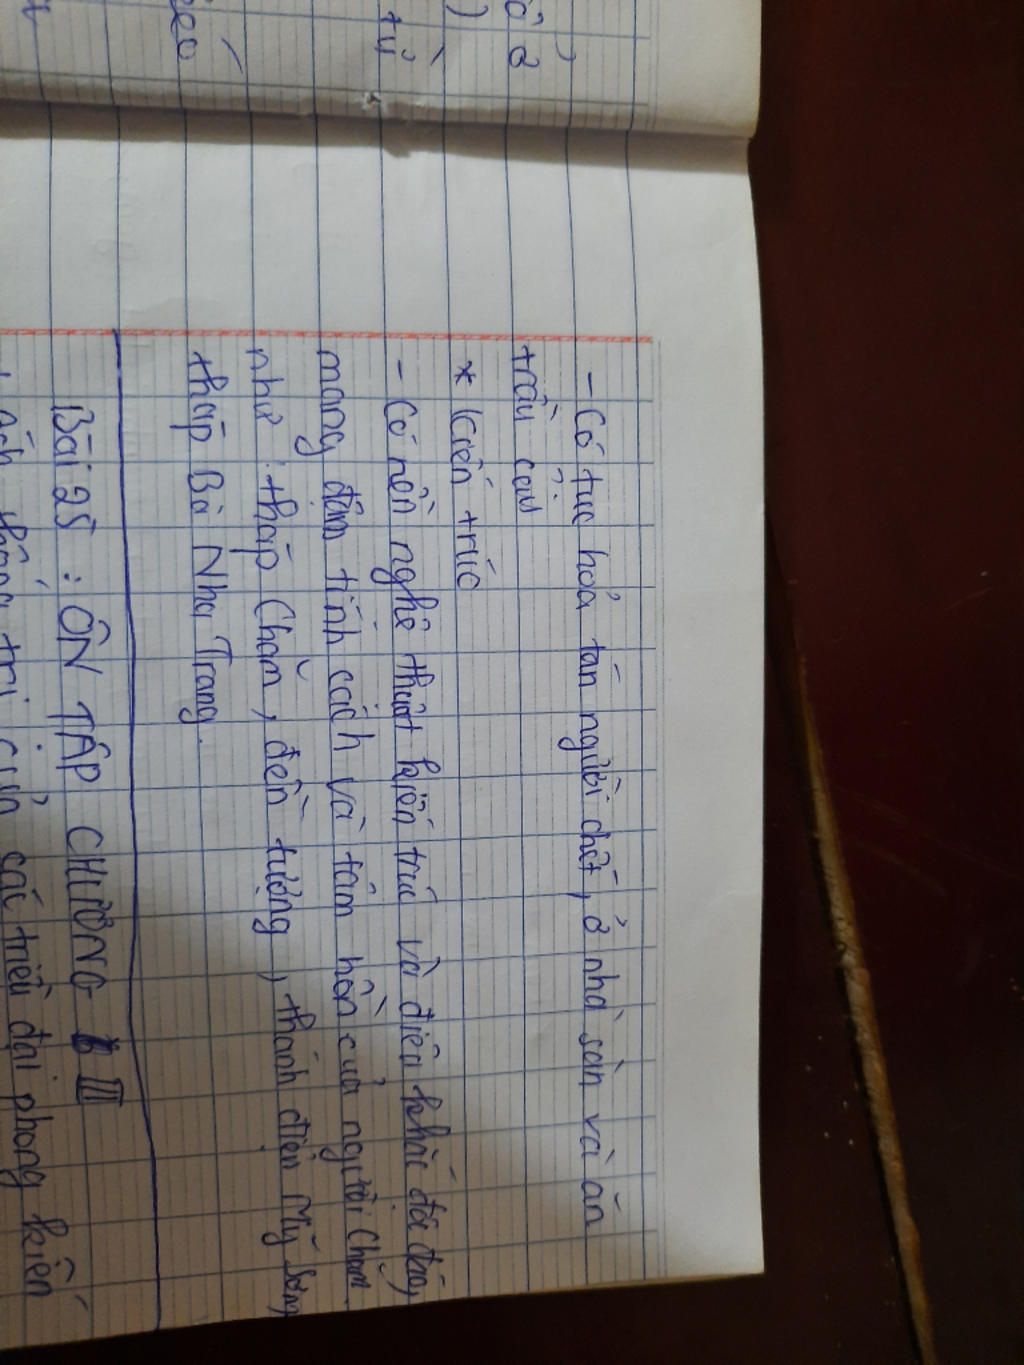 - Có tục hoả tán người chết, ở nhà sàn và ăn
trầu cau
* Kiến trúc
- Có nền nghệ thuật kiến trúc và điêu khắc độc đáo,
mang đậm tính cách và tâm hồn của người Chăm
như : tháp Chăm, đền tượng, thánh điện Mỹ Sơn,
tháp Bà Nha Trang.
Bài 25 : ÔN TẬP CHƯƠNG III
thống trị của các triều đại phong kiến